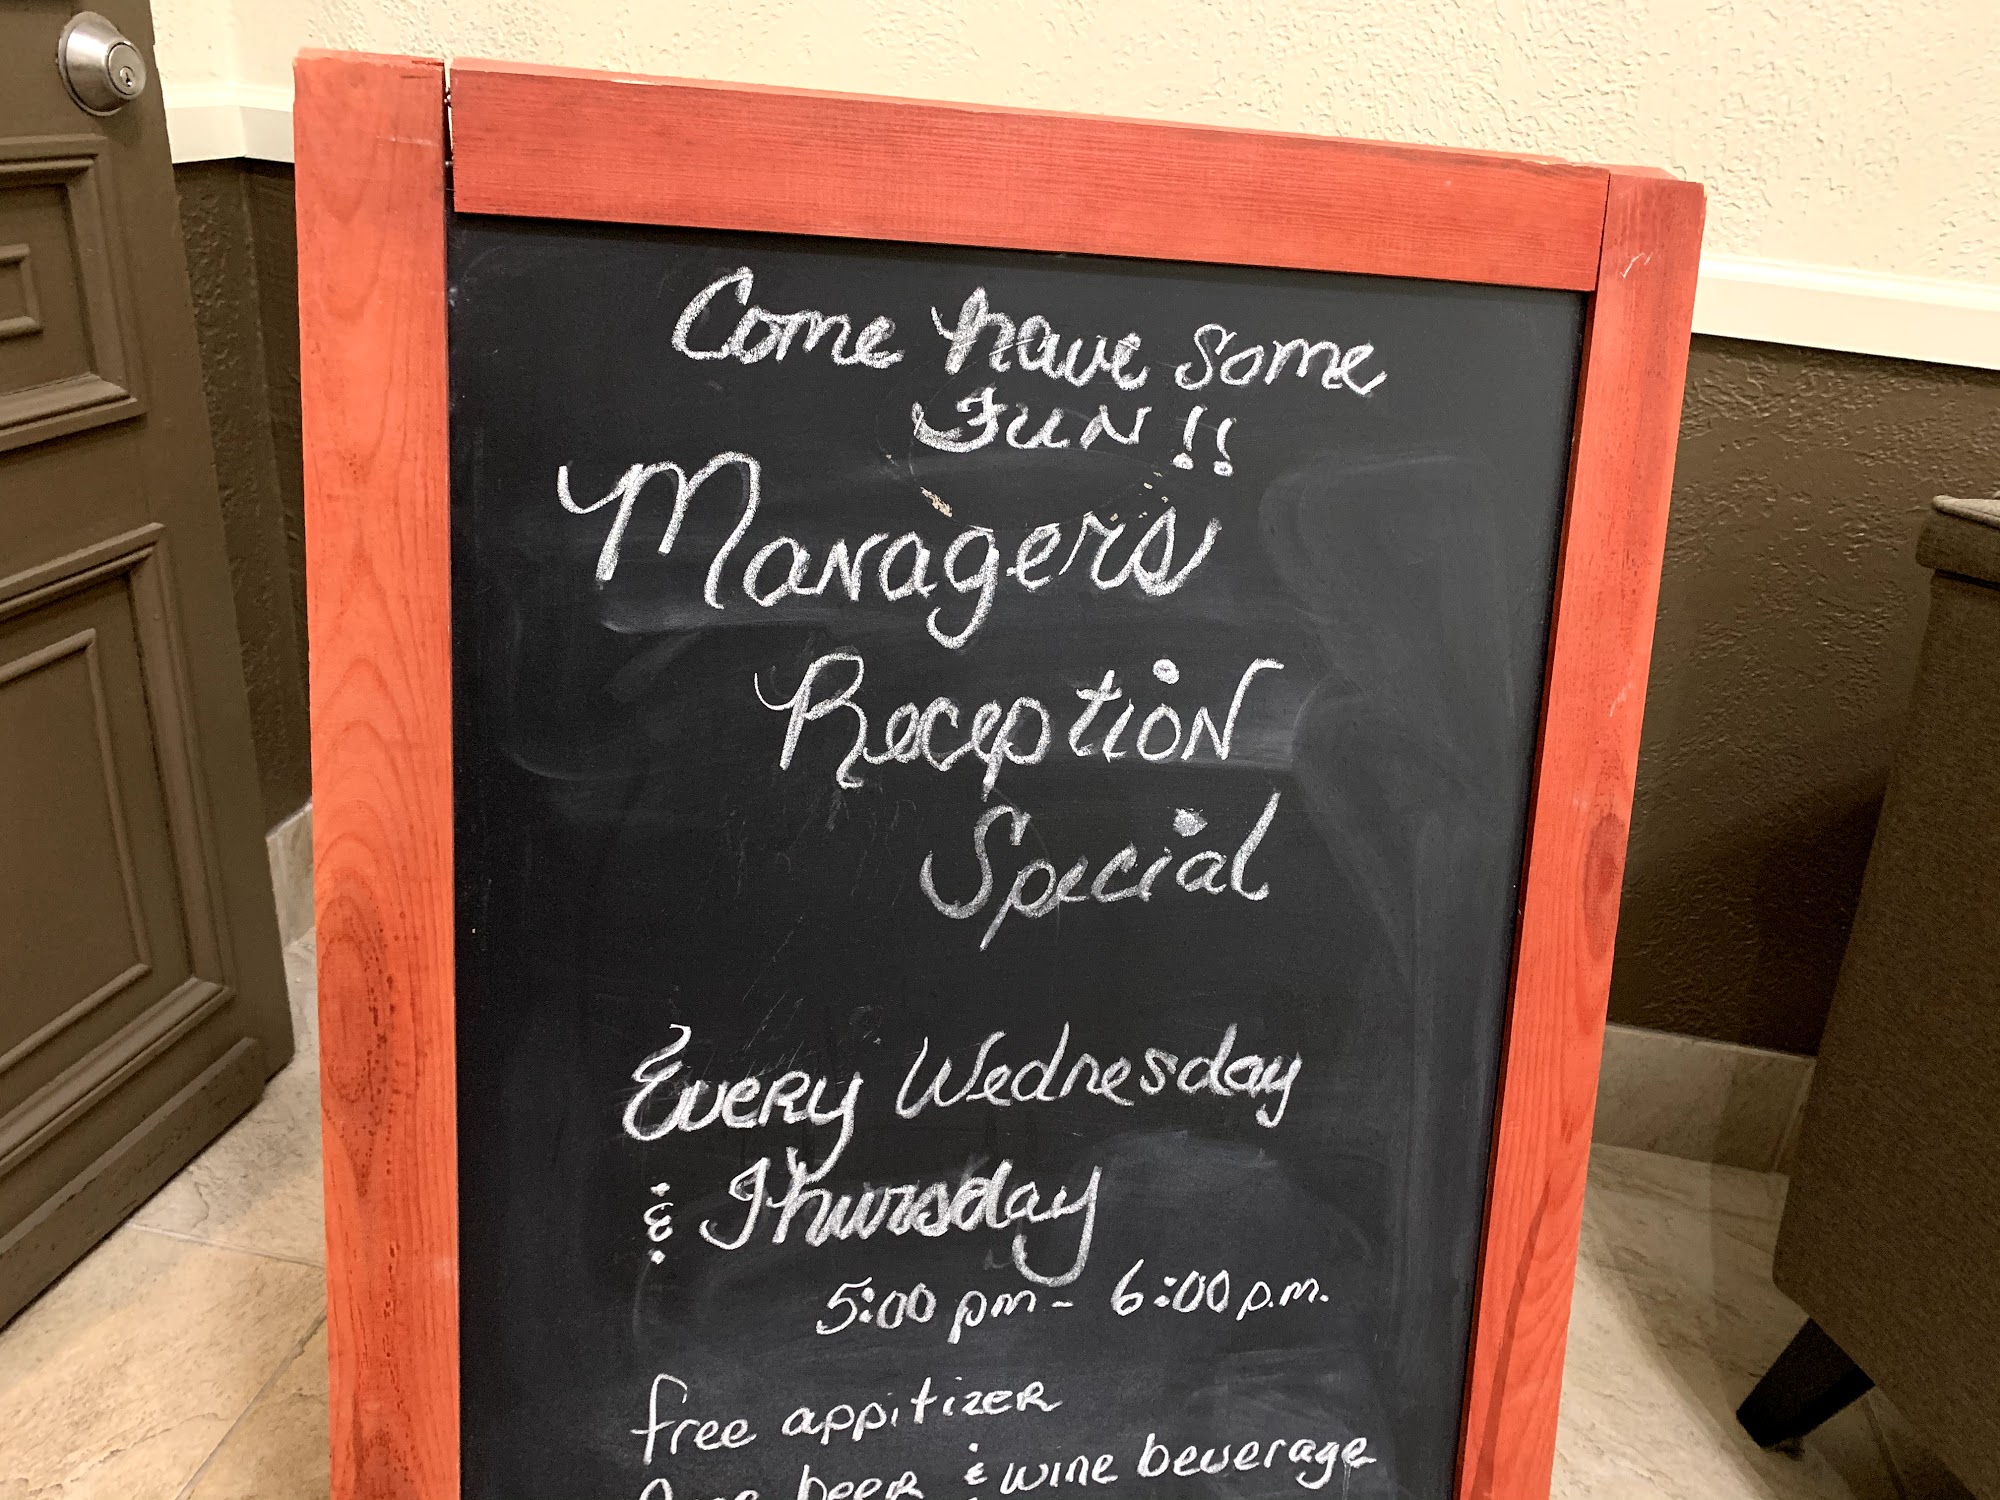 Come have some
FUN!!
Managers
Reception
Special
Every Wednesday
& Thursday
5:00 pm - 6:00 p.m.
free appitizer
beer & wine beverage